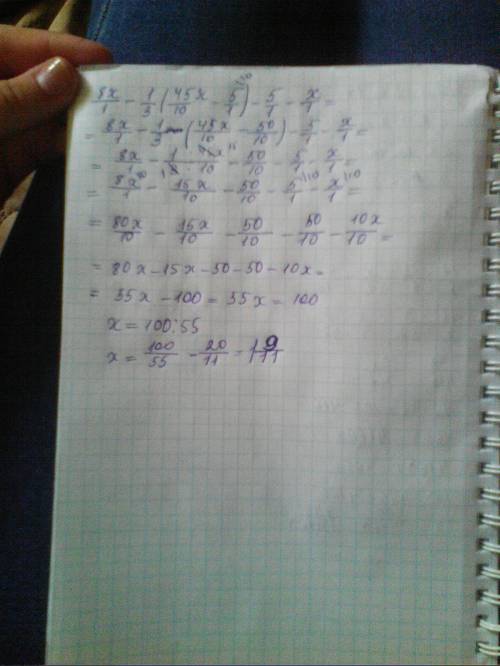 8x/1 - 1/3 (45x/10 - 5/1 \10) - 5/1 - x/1 =
= 8x/1 - 1/3 (45x/10 - 50/10) - 5/1 - x/1 =
= 8x/1 - 15 - 50/10 - 5/1 - x/1 =
= 8x/1 \10 - 15x/10 - 50/10 - 5/1 \10 - x/1 \10 =
= 80x/10 - 15x/10 - 50/10 - 50/10 - 10x/10 =
= 80x - 15x - 50 - 50 - 10x =
= 55x - 100 = 55x = 100
x = 100:55
x = 100/55 - 20/11 = 1 9/11